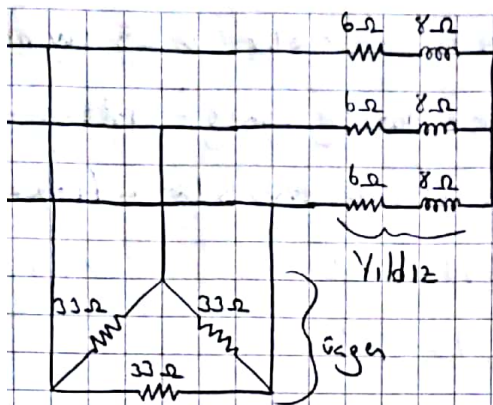 6 Ω 8 Ω
6 Ω 8 Ω
6 Ω 8 Ω
Yıldız
33 Ω 33 Ω
33 Ω
üçgen